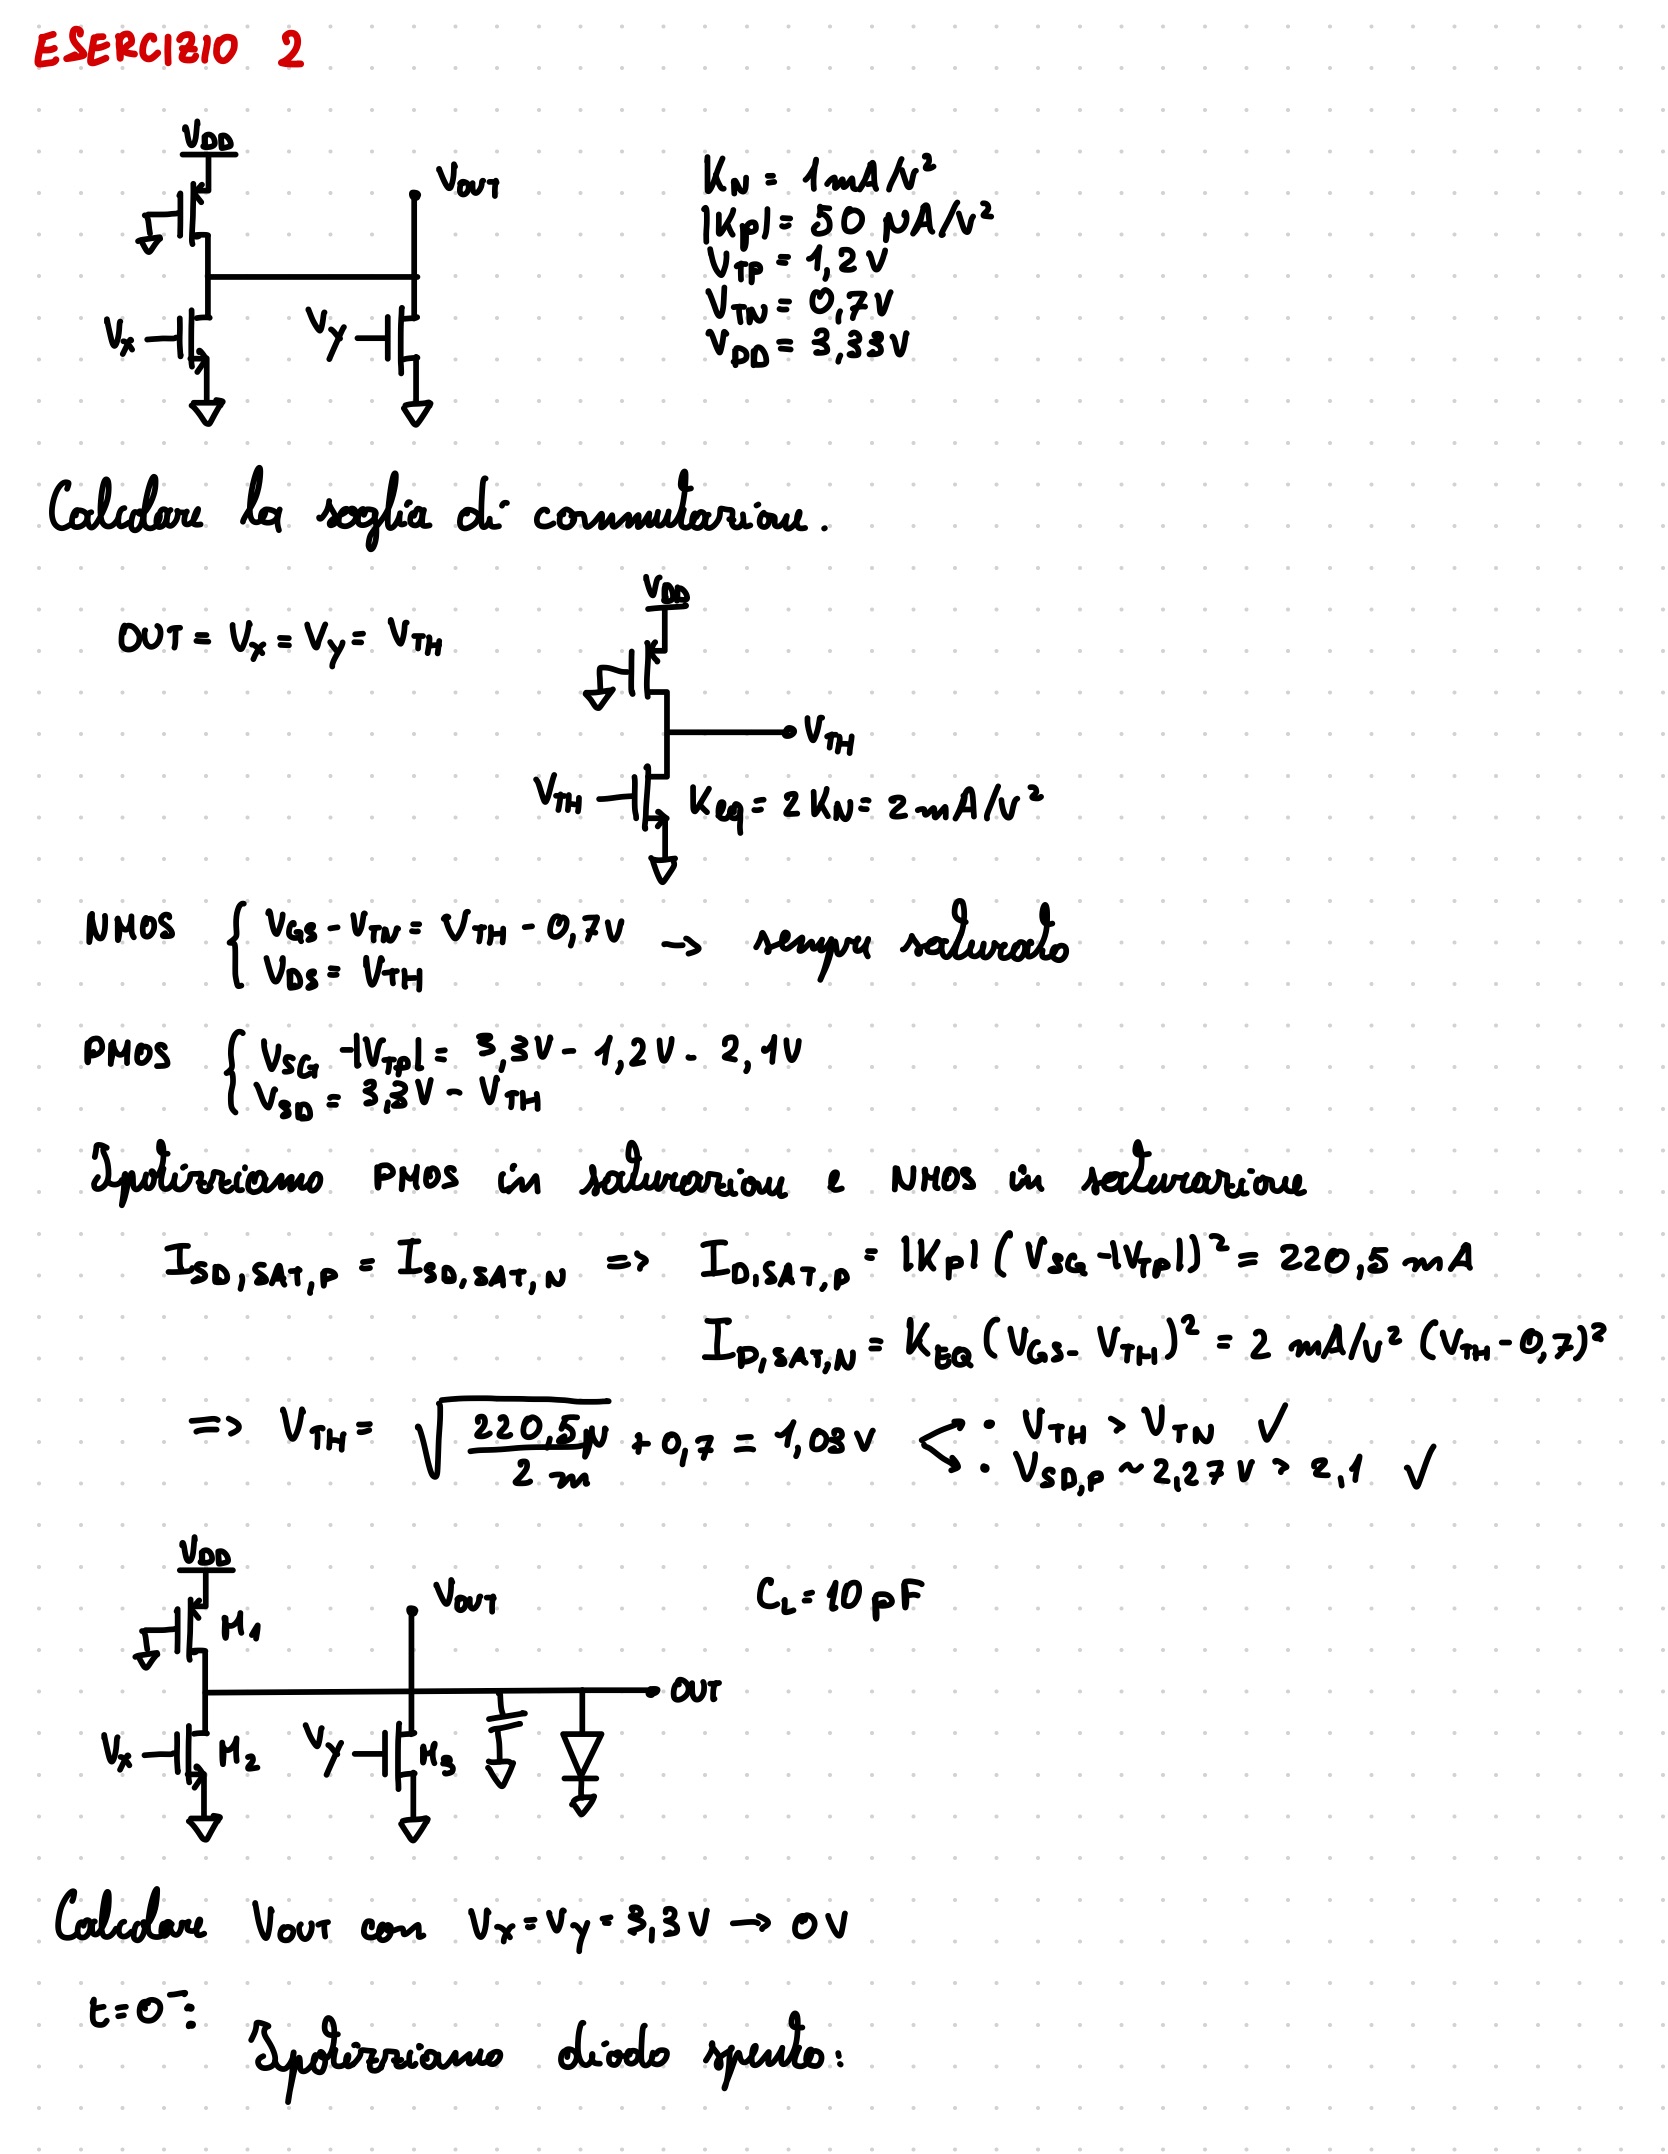 ESERCIZIO 2
V_DD
V_OUT
V_x
V_y
K_N = 1 mA/V²
|K_P| = 50 μA/V²
V_TP = 1,2 V
V_TN = 0,7 V
V_DD = 3,33 V
Calcolare la soglia di commutazione.
OUT = V_x = V_y = V_TH
V_DD
V_TH
V_TH
K_eq = 2 K_N = 2 mA/V²
NMOS { V_GS - V_TN = V_TH - 0,7 V → sempre saturato
V_DS = V_TH
PMOS { V_SG - |V_TP| = 3,3 V - 1,2 V - 2,1 V
V_SD = 3,3 V - V_TH
Ipotizziamo PMOS in saturazione e NMOS in saturazione
I_SD,SAT,P = I_SD,SAT,N => I_D,SAT,P = |K_P| (V_SG - |V_TP|)² = 220,5 mA
I_D,SAT,N = K_EQ (V_GS - V_TH)² = 2 mA/V² (V_TH - 0,7)²
=> V_TH = √(220,5 μ / 2 m) + 0,7 = 1,03 V < • V_TH > V_TN ✓
• V_SD,P ~ 2,27 V > 2,1 ✓
V_DD
M_1
V_OUT
C_L = 10 pF
OUT
V_x
M_2
V_y
M_3
Calcolare V_OUT con V_x = V_y = 3,3 V → 0 V
t = 0⁻:
Ipotizziamo diodo spento: